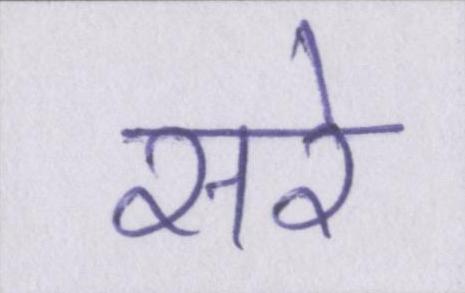 सरे